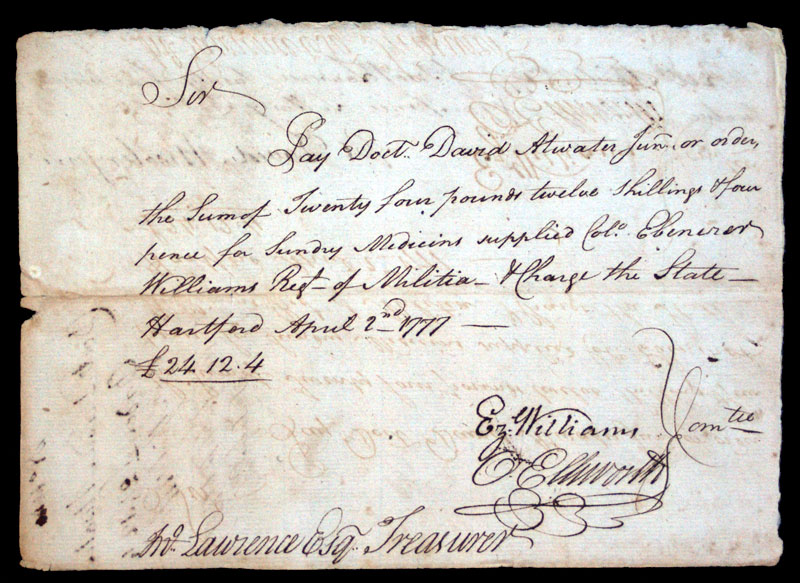 Sir
Pay Doct. David Atwater Junr. or order,
the Sum of Twenty four pounds twelve shillings & four
pence for Sundry Medicins supplied Colo. Ebenezer
Williams Regt. of Militia — & Charge the State —
Hartford April 2nd 1777 —
£24.12.4
Ez. Williams
Comtee
O. Ellsworth
Jno. Lawrence Esq. Treasurer